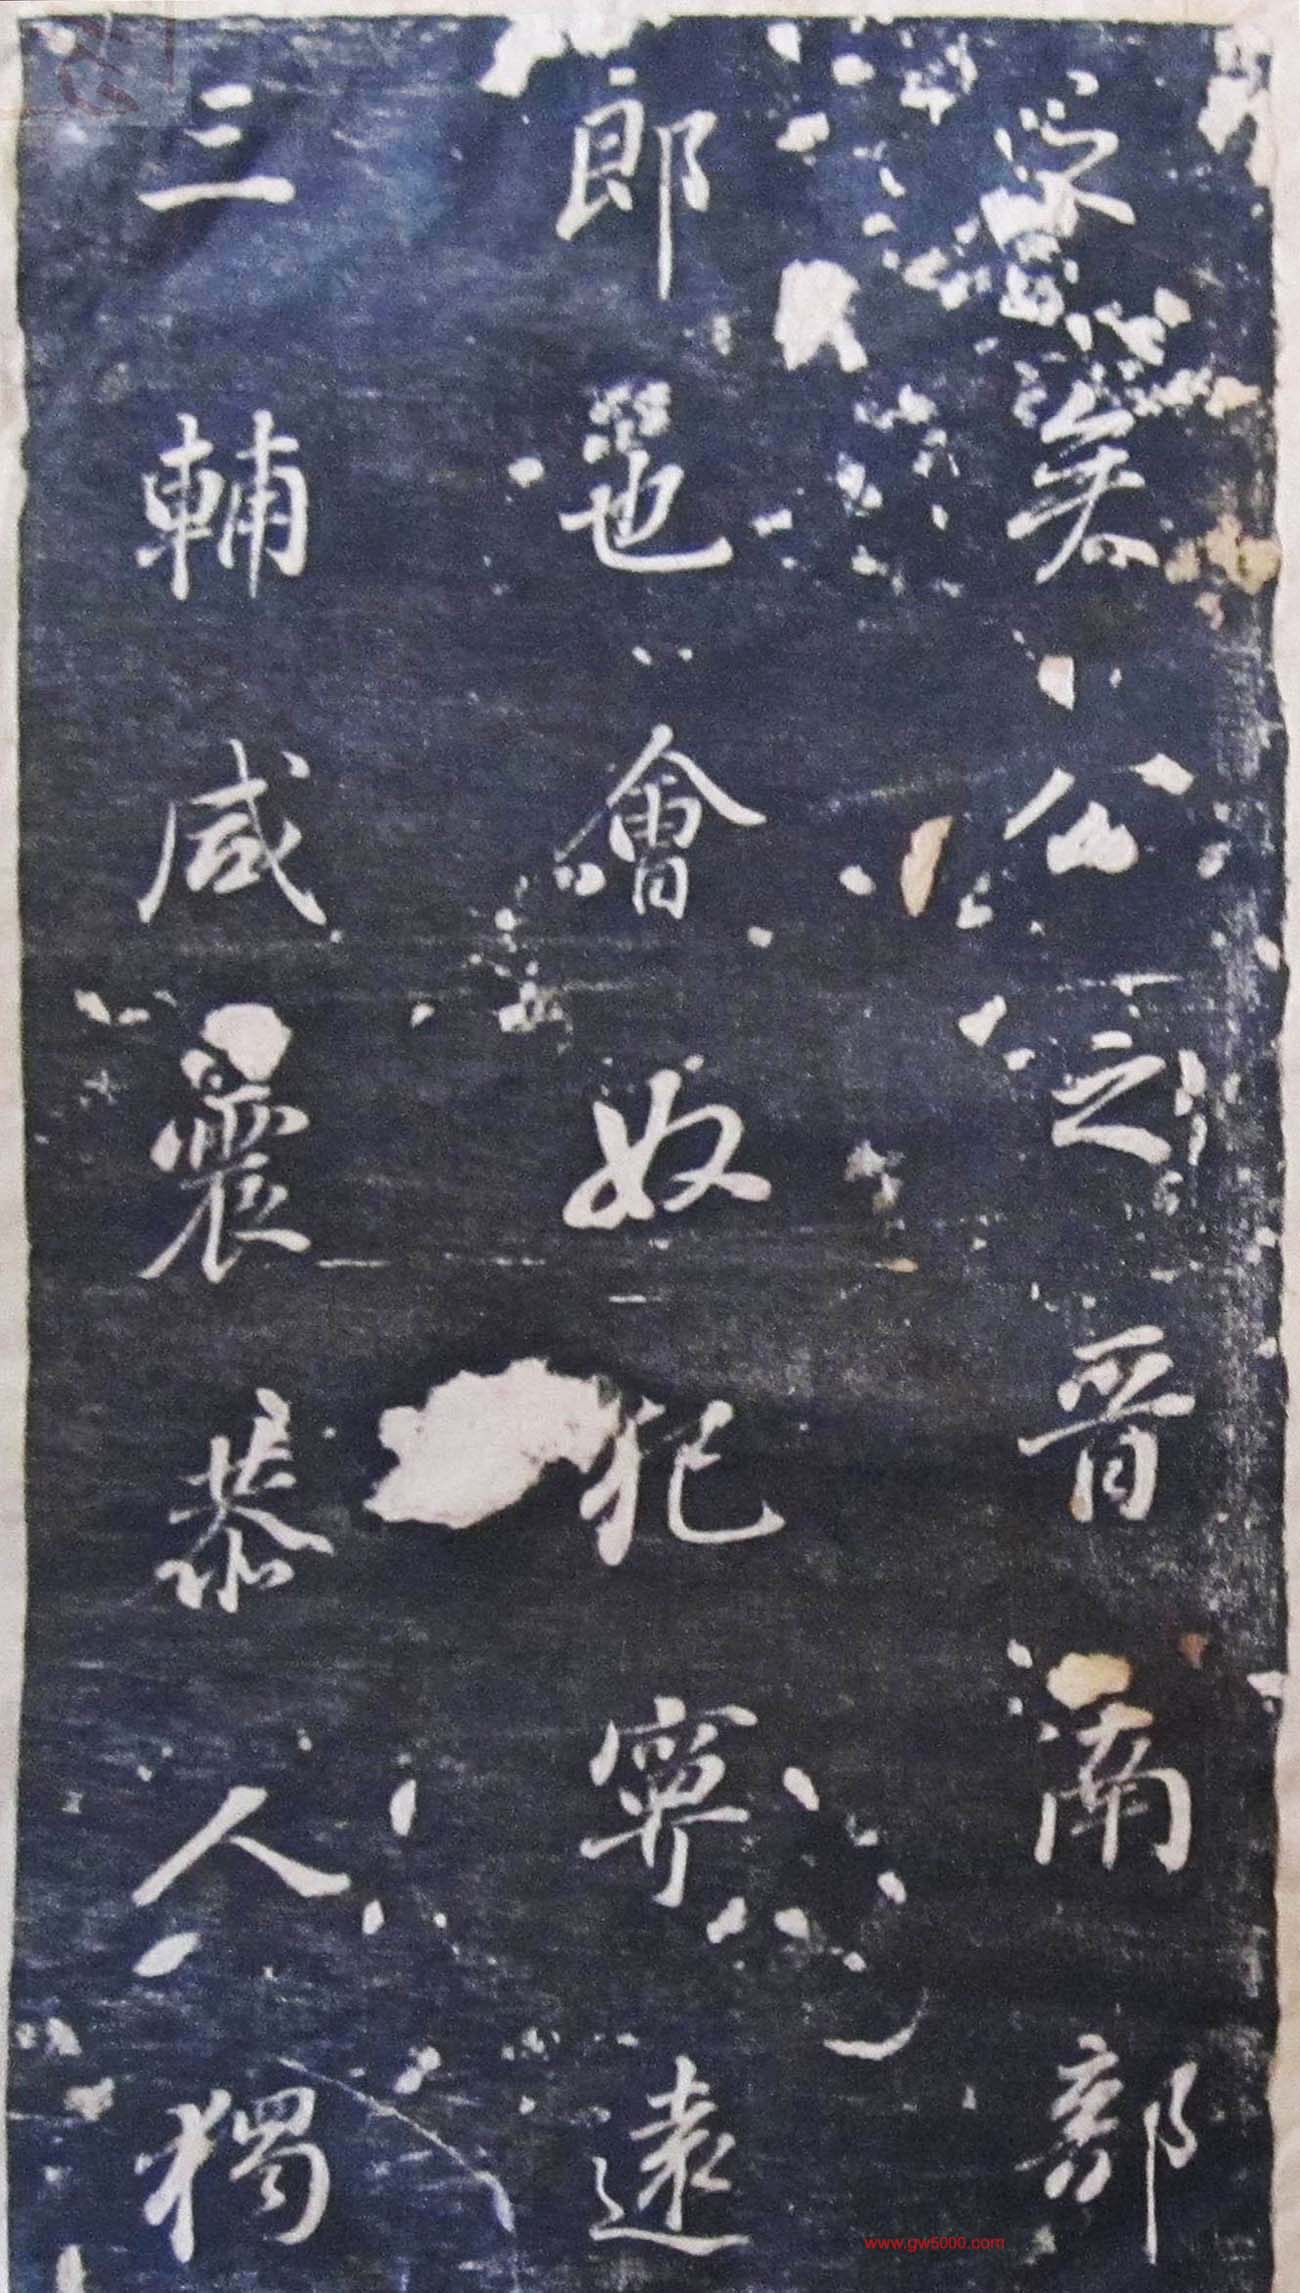 矣公之晋南部
郎也會奴犯寧遠
三輔咸震恭人獨
www.gw5000.com